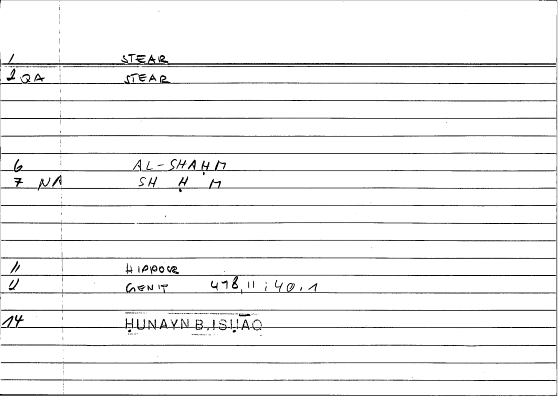 1 STEAR
2 QA STEAR
6 AL-SHAḤM
7 NA SH Ḥ M
11 HIPPOCR
GENIT 478,11 ; 40,1
14 ḤUNAYN B. ISḤĀQ